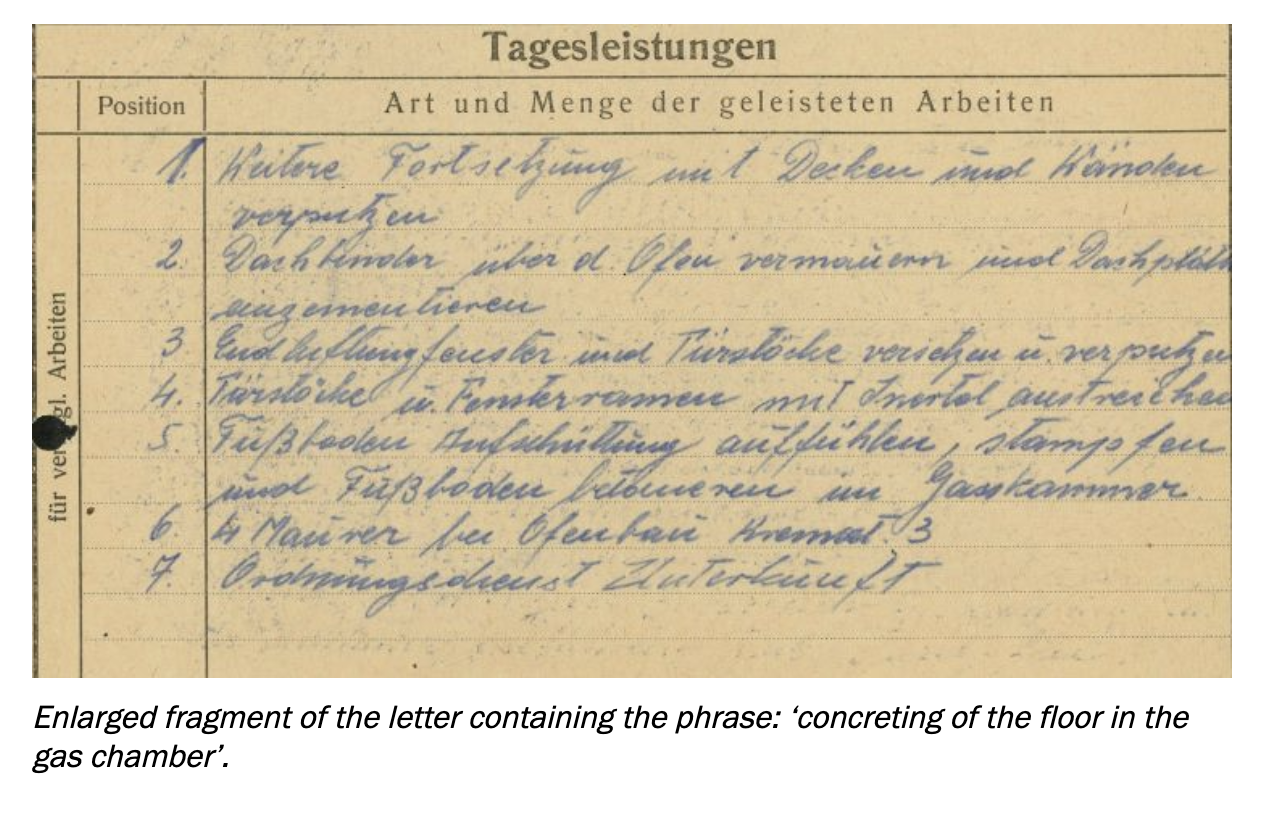 Tagesleistungen
Position Art und Menge der geleisteten Arbeiten
für vergl. Arbeiten
1. Weitere Fortsetzung mit Decken und Wänden
verputzen
2. Dachbinder über d. Ofen vermauern und Dachplatt
anzementieren
3. Endlüftungfenster und Türstöcke versetzen u. verputzen
4. Türstöcke u. Fensterramen mit Inertol austreichen
5. Fußboden Aufschüttung auffühlen, stampfen
und Fußboden betonieren im Gasskammer
6. 4 Maurer bei Ofenbau Kremat. 3
7. Ordnungsdienst Unterkunft
Enlarged fragment of the letter containing the phrase: ‘concreting of the floor in the
gas chamber’.